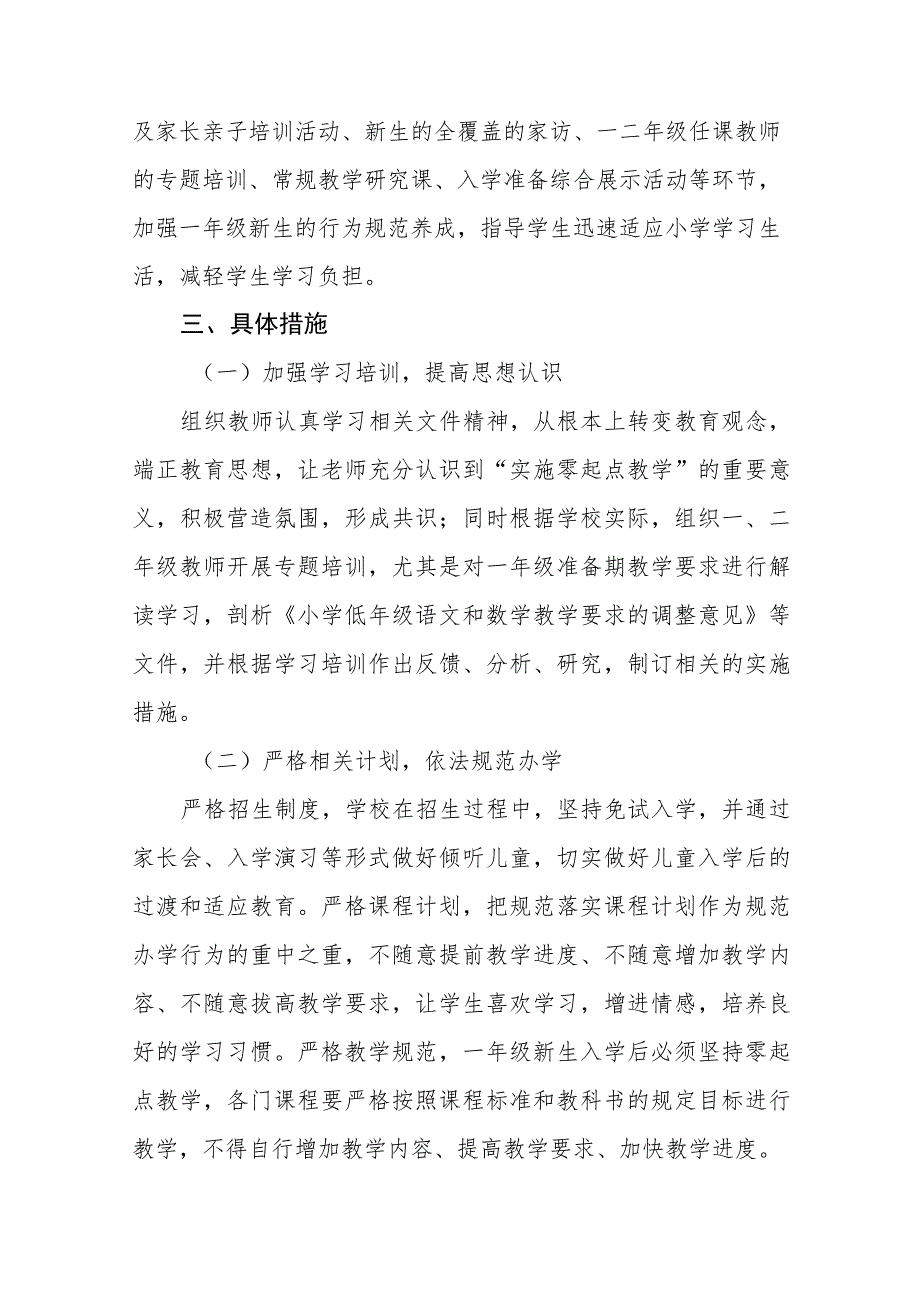 及家长亲子培训活动、新生的全覆盖的家访、一二年级任课教师
的专题培训、常规教学研究课、入学准备综合展示活动等环节，
加强一年级新生的行为规范养成，指导学生迅速适应小学学习生
活，减轻学生学习负担。
三、具体措施
（一）加强学习培训，提高思想认识
组织教师认真学习相关文件精神，从根本上转变教育观念，
端正教育思想，让老师充分认识到“实施零起点教学”的重要意
义，积极营造氛围，形成共识；同时根据学校实际，组织一、二
年级教师开展专题培训，尤其是对一年级准备期教学要求进行解
读学习，剖析《小学低年级语文和数学教学要求的调整意见》等
文件，并根据学习培训作出反馈、分析、研究，制订相关的实施
措施。
（二）严格相关计划，依法规范办学
严格招生制度，学校在招生过程中，坚持免试入学，并通过
家长会、入学演习等形式做好倾听儿童，切实做好儿童入学后的
过渡和适应教育。严格课程计划，把规范落实课程计划作为规范
办学行为的重中之重，不随意提前教学进度、不随意增加教学内
容、不随意拔高教学要求，让学生喜欢学习，增进情感，培养良
好的学习习惯。严格教学规范，一年级新生入学后必须坚持零起
点教学，各门课程要严格按照课程标准和教科书的规定目标进行
教学，不得自行增加教学内容、提高教学要求、加快教学进度。